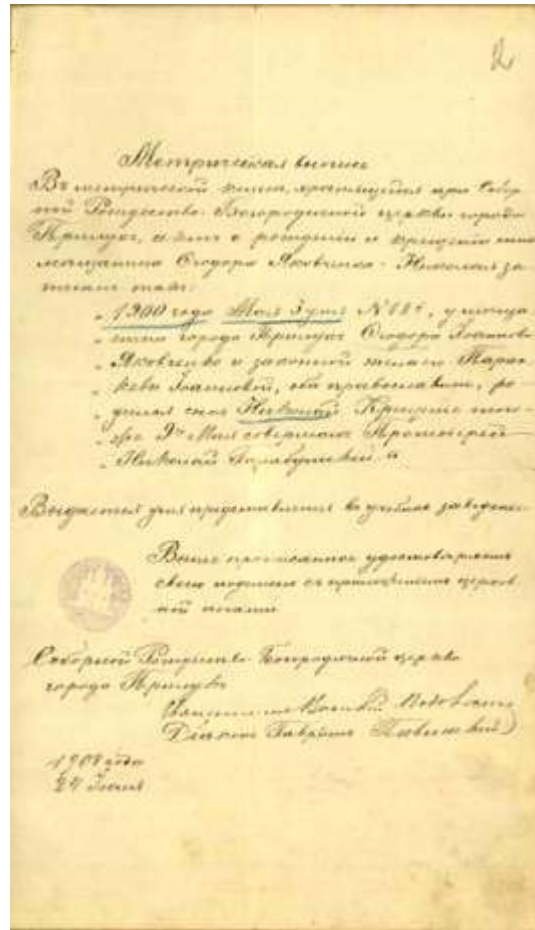 2
Метрическая выпись
Въ метрической книге, хранящейся при Собор
ной Рождество-Богородичной церкви города
Прилукъ, о рождении и крещении сына
мещанина Ѳеодора Яковченко - Николая за
писано такъ:
„ 1900 года Мая 3 дня № 184, у меща
„ нина города Прилукъ Ѳеодора Іоаннова
„ Яковченко и законной жены его Парас
„ кевы Іоанновой, оба православные, ро
„ дился сынъ Николай Крещение того
„ же 9го Мая совершалъ Протоіерей
„ Николай
Выдается для представления въ учебное заведение
Выше прописанное удостоверяемъ
своею подписью съ приложениемъ церков
ной печати
Соборной Рождество-Богородичной церкви
города Прилукъ
Священникъ Василій
Діаконъ Гавріилъ
1908 года